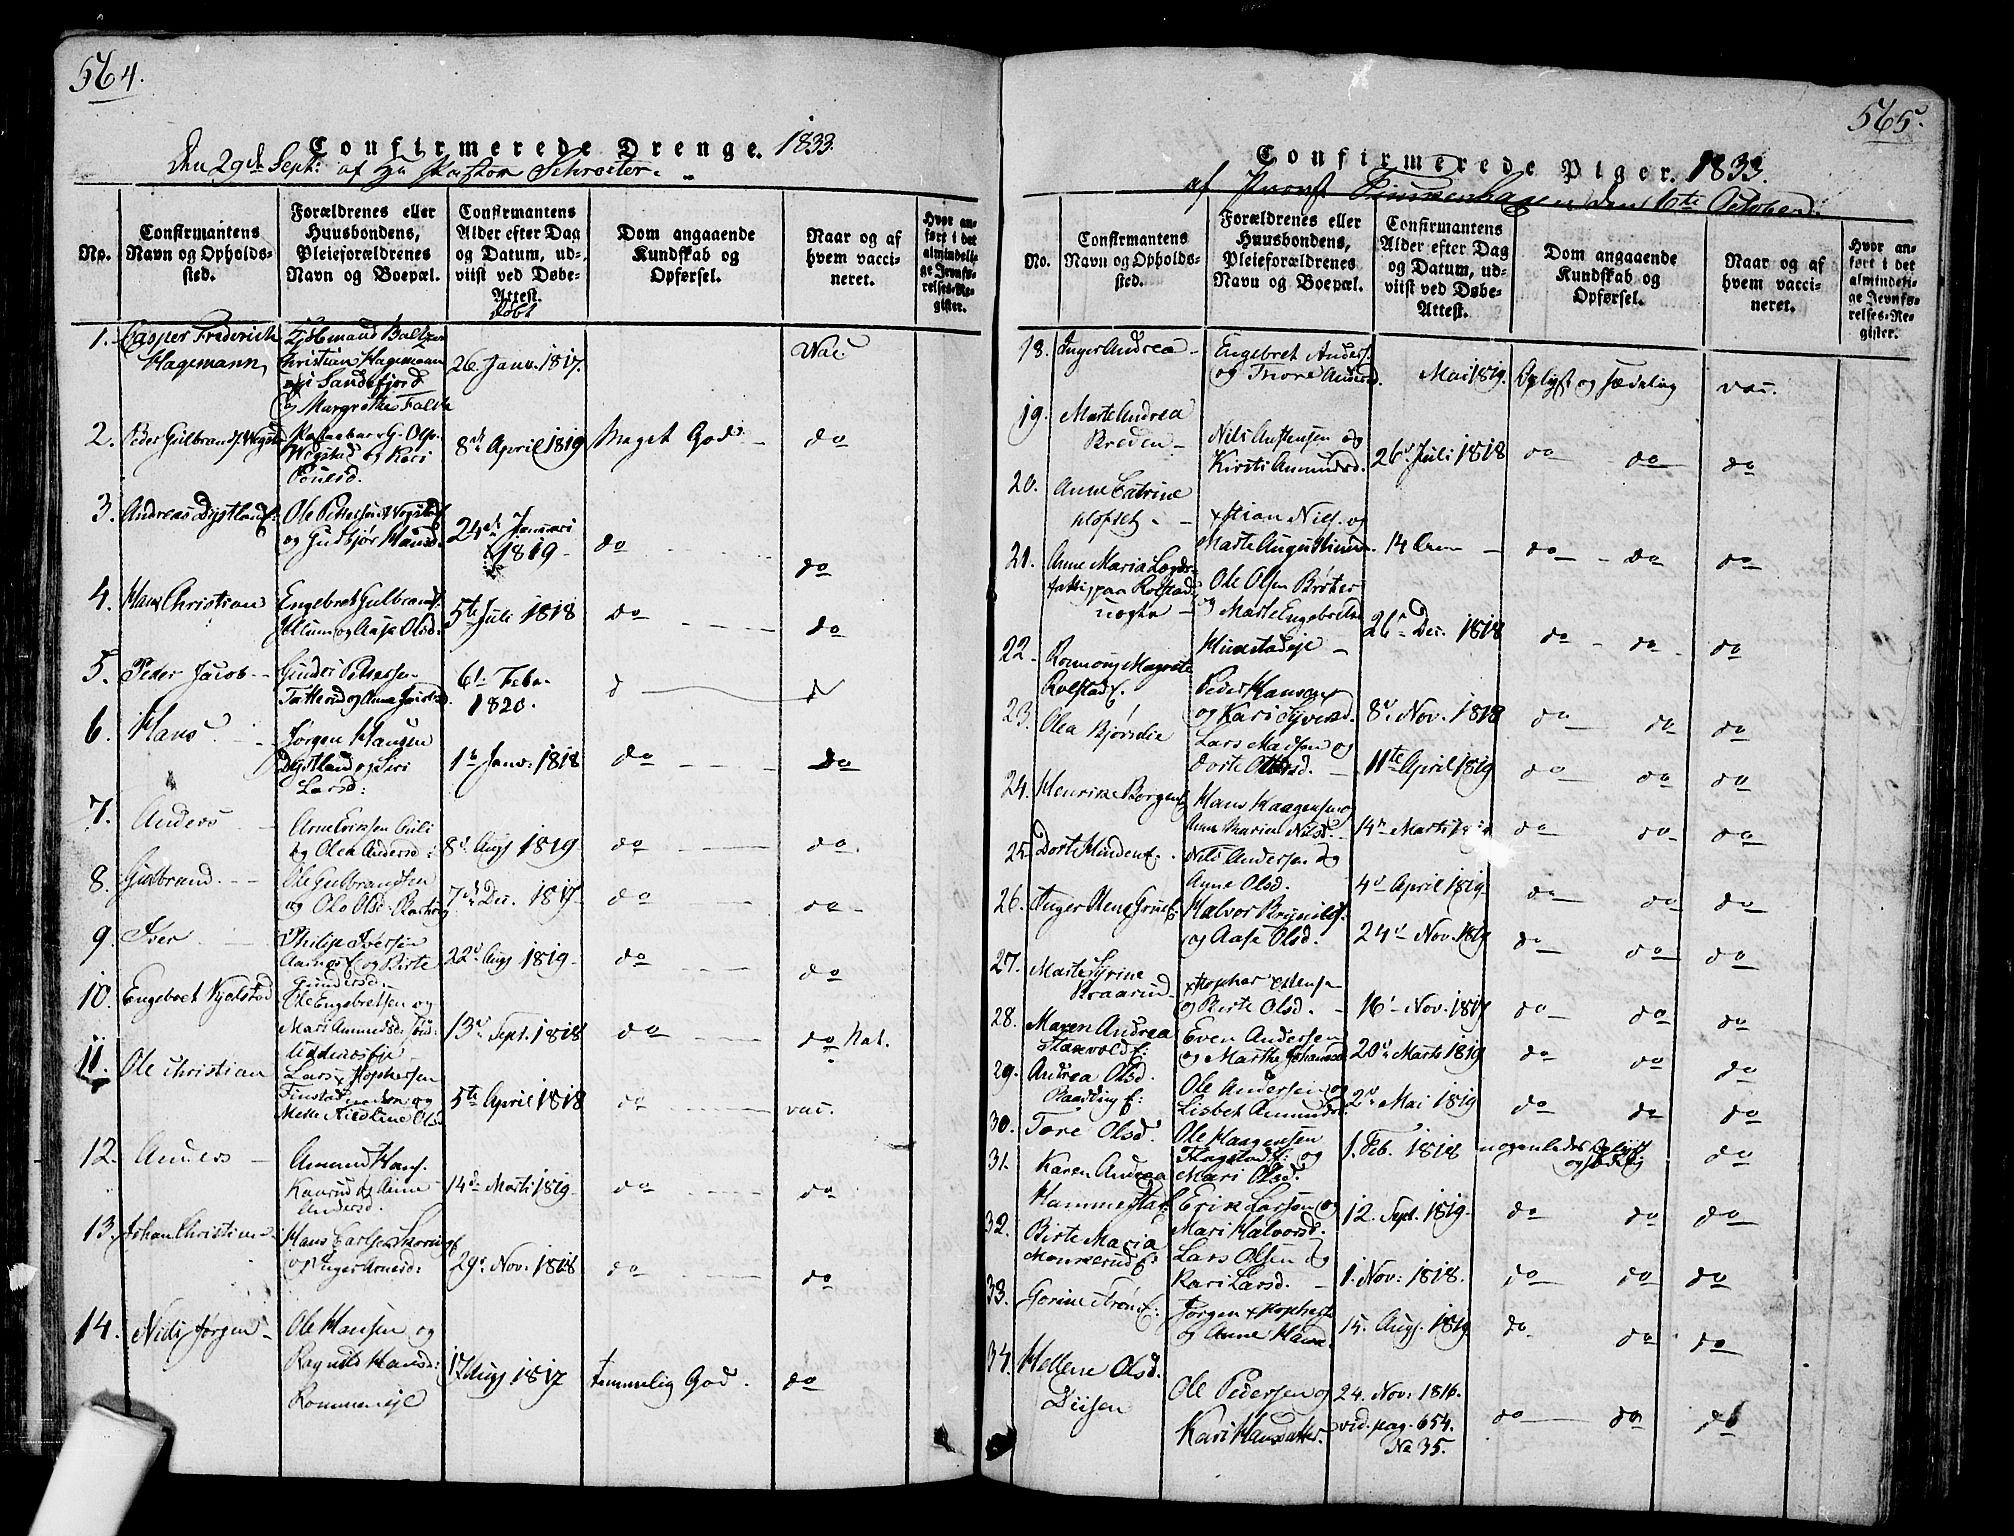 564.
Confirmerede Drenge. 1833.
Den 29de Sept: af Hr Pastor Schroeter.
No.
Confirmantens Navn og Opholds-
sted.
Forældrenes eller
Huusbondens,
Pleieforældrenes
Navn og Boepæl.
Confirmantens
Alder efter Dag
og Datum, ud-
viist ved Døbe-
Attest.
døbt
Dom angaaende
Kundskab og
Opførsel.
Naar og af
hvem vacci-
neret.
Hvor an-
ført i det
almindeli-
ge Jevnfø-
relses-Re-
gister.
1. Casper Frederich
Hagemann
Christian Hagemann
i Sandefjord
og Margrethe Falck
26. Janv. 1817.
Vac.
2. Peder Gulbrands. Wegstad
G. Ols.
Wegstad og Kari
Poulsd.
8de April 1819
Meget God.
do
3. Andreas Dystland
Ole Pettersen
og Gudbjør Hansd.
24de Januari
1819
do
do
4. Hans Christian
Engebret Gulbrands.
Jellum og Aase Olsd.
5te Juli 1818
do
do
5. Peder Jacob
Gunder Pettersen
6te Febr.
1820.
d
d
6. Hans
Jørgen Hansen
Dystland og Siri
Larsd:
1te Janv. 1818
do
do
7. Anders
Arne Ericksen
og Olea Andersd:
8de Aug 1819
do
do.
8. Gulbrand
Ole Gulbrandsen
og Olea Olsd.
7de Dec. 1817
do
do
9. Iver
Philip Iversen
Aarnæs og Birte
Gundersd.
22de Aug 1819
do
do
10. Engebret Nyelstad
Ole Engebretsen og
Mari Amundsd.
13de Sept. 1818
do
do Nat.
11. Ole Christian
Lars xstophersen
Finstad og
Mette Nicoline Olsd
5te April 1818
do
vac.
12. Anders
Amund Hans.
Kaarud og Anne
Andersd.
14de Marti 1819
do
do
13. Johan Christian
Hans Carlsen
og Inger Arnesd:
29de Nov. 1818
do
do
14. Niels Jørgen
Ole Hansen og
Ragnild Hansd:
Rommeneje
17 Aug 1817
temmelig God.
do
565.
Confirmerede Piger. 1833.
af Provst Finckenhagen den 6te October.
No.
Confirmantens
Navn og Opholds-
sted.
Forældrenes eller
Huusbondens,
Pleieforældrenes
Navn og Boepæl.
Confirmantens
Alder efter Dag
og Datum, ud-
viist ved Døbe-
Attest.
Dom angaaende
Kundskab og
Opførsel.
Naar og af
hvem vacci-
neret.
Hvor an-
ført i det
almindeli-
ge Jevnfø-
relses-Re-
gister.
18. Inger Andrea
Engebret Anders.
og Thore
Mai 1819.
Oplyst og Sædelig
vac.
19. Marte Andrea
Breden
Nils Austensen og
Kirsti Amundsd.
26de Juli 1818
do
do
do
20. Anne Catrine
Kloftet
xstian Niels. og
Marte Augustinusd.
14 Aar
do
do
do
21. Anne Maria
Rolstad
Ole Olsen Bröter
og Marte Engebretsd.
Huuestadeje
26de Dec. 1818
do
do
do
22. Ronnoug Magrete
Rolstad
Peder Hansen
og Kari Syversd.
8de Nov. 1818
do
do
do
23. Olea Bjørsdie
Lars Madsen og
Dorte Ottersd.
11te April 1819
do
do
do
24. Henrike Borgen
Hans Haagensen og
Anne Maria Nilsd.
14de Marti
do
do
do
25. Dorte Minden
Nils Andersen og
Anne Olsd.
4de April 1819
do
do
do
26. Inger Lene
Halvor
og Aase Olsd.
24de Nov. 1819
do
do
do
27. Marte Syrine
Braarud
xstopher
og Berte Olsd.
16de Nov. 1817
do
do
do
28. Maren Andrea
Even Andersen
og Marthe Johannesd.
20de Marti 1819
do
do
do
29. Andrea Olsd.
Ole Andersen og
Lisbet Amundsd.
2de Mai 1819
do
do
do
30. Tore Olsd.
Ole Haagensen
Flagstad og
Mari Olsd.
1. Feb. 1818
nogenledes Oplyst
og sædelig
do
31. Karen Andrea
Hammerstad
Erik Larsen og
Mari Halvorsd.
12. Sept. 1819
do
do
do
32. Birte Maria
Monserud
Lars Olsen og
Kari Larsd.
1. Nov. 1818.
do
do
do
33. Gorine
Jørgen xstophersen
og Anne Hansd.
15. Aug. 1819
do
do
do
34. Hellene Olsd.
Diisen
Ole Pedersen og
Kari Hansdatter.
24. Nov. 1816.
vid. pag. 654.
No 35.
do
do
do